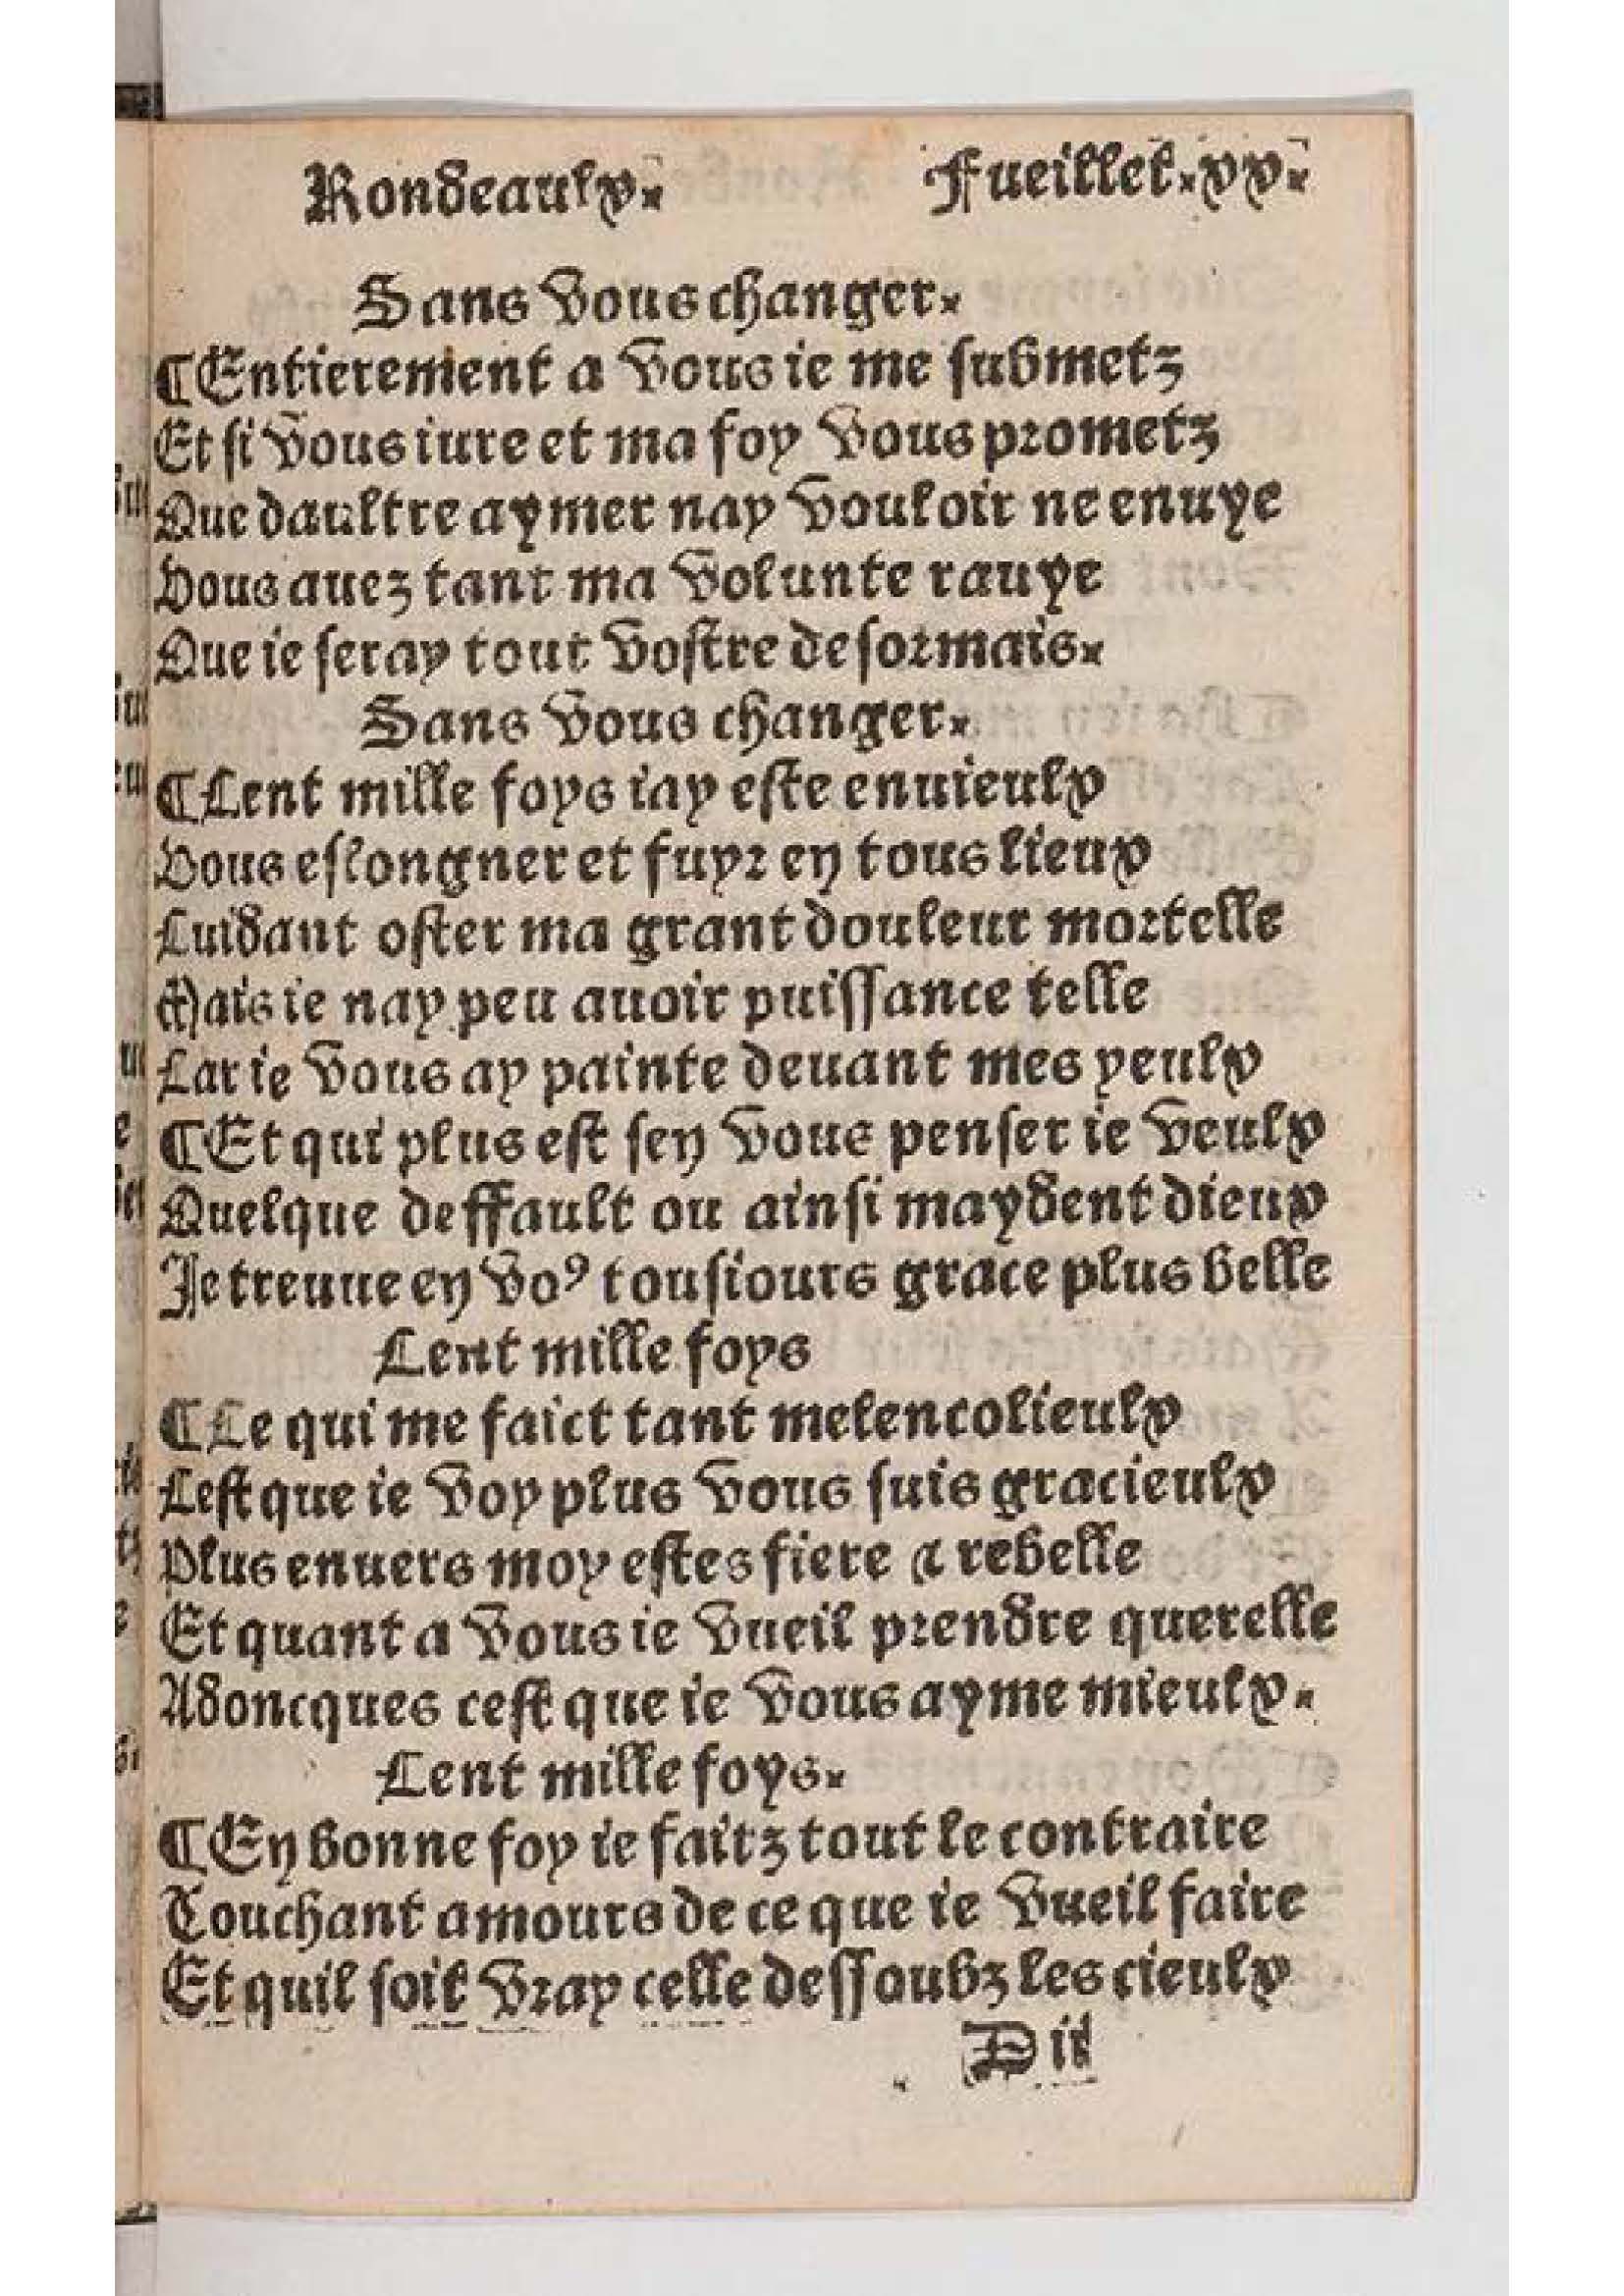 Rondeaulx.
Fueillet.xx.
Sans vous changer.
¶Entierement a vous ie me submetz
Et si vous iure et ma foy vous prometz
Que daultre aymer nay vouloir ne enuye
Vous auez tant ma volunte rauye
Que ie seray tout vostre desormais.
Sans vous changer.
¶Cent mille foys iay este enuieulx
Vous eslongner et fuyr en tous lieux
Cuidant oster ma grant douleur mortelle
Mais ie nay peu auoir puissance telle
Car ie vous ay painte deuant mes yeulx
¶Et qui plus est sen vous penser ie veulx
Quelque deffault ou ainsi maydent dieux
Je treuue en voꝰ tousiours grace plus belle
Cent mille foys
¶Ce qui me faict tant melencolieulx
Cest que ie voy plus vous suis gracieulx
Plus enuers moy estes fiere ⁊ rebelle
Et quant a vous ie vueil prendre querelle
Adoncques cest que ie vous ayme mieulx.
Cent mille foys.
¶En bonne foy ie faitz tout le contraire
Touchant amours de ce que ie vueil faire
Et quil soit vray celle dessoubz les cieulx
D ii